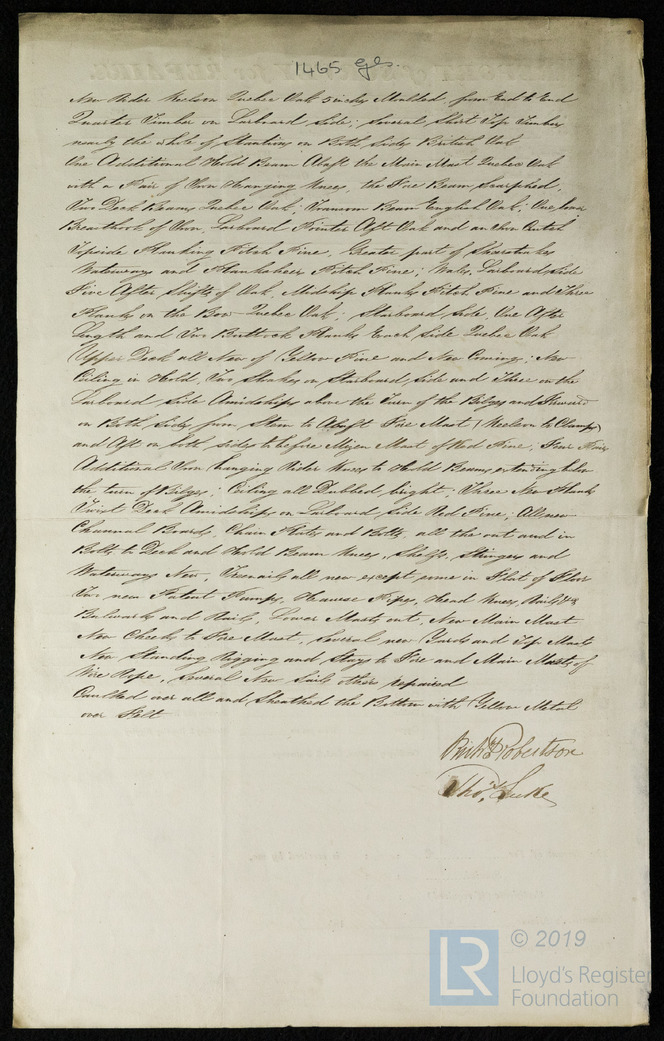 1465 Gls.
New Rider Keelson Quebec Oak 5 inches Moulded, from End to End
Quarter Timber on Larboard Side; Several Short Top Timbers
nearly the whole of Stantions on Both Sides British Oak
One Additional Hold Beam Abaft the Main Mast Quebec Oak
with a Pair of Iron Hanging Knees, the Fore Beam Scarphed,
Two Deck Beams Quebec Oak; Transom Beam English Oak; One lower
Breasthook of Iron, Larboard Pointer Aft Oak and an Iron Crutch
Topside Planking Pitch Pine, Greater part of Sheerstrakes
Waterways and Planksheers Pitch Pine; Wales, Larboard Side
Five After Shifts of Oak, Midship Planks Pitch Pine and Three
Planks in the Bow Quebec Oak; Starboard side, One After
Length and Two Buttock Planks Each Side Quebec Oak
Upper Deck all New of Yellow Pine and New Comings; New
Ceiling in Hold, Two Strakes on Starboard Side and Three on the
Larboard Side Amidships above the Turn of the Bilges and Forward
on Both Sides from Stem to Abaft Fore Mast (Keelson to Clamps)
and Aft on both sides to before Mizen Mast of Red Pine; Four Pairs
Additional Iron Hanging Rider Knees to Hold Beams extending below
the turn of Bilges; Ceiling all Dubbed bright; Three New Planks
Twixt Decks Amidships on Larboard Side Red Pine; All new
Channel Boards, Chain Plates and Bolts, all the out and in
Bolts to Deck and Hold Beam Knees, Shelfs, Stringers and
Waterways New, Treenails all new except some in Flat of Floor
Two new Patent Pumps, Hawse Pipes, Head Knees, Rails &c
Bulwarks and Rails, Lower Masts out, New Main Mast
New Cheeks to Fore Mast, Several new Yards and Top Masts
New Standing Rigging and Stays to Fore and Main Masts of
Wire Rope, Several New Sails others repaired
Caulked over all and Sheathed the Bottom with Yellow Metal
over Felt
Robertson
Thos. Luke
LR
© 2019
Lloyd's Register
Foundation